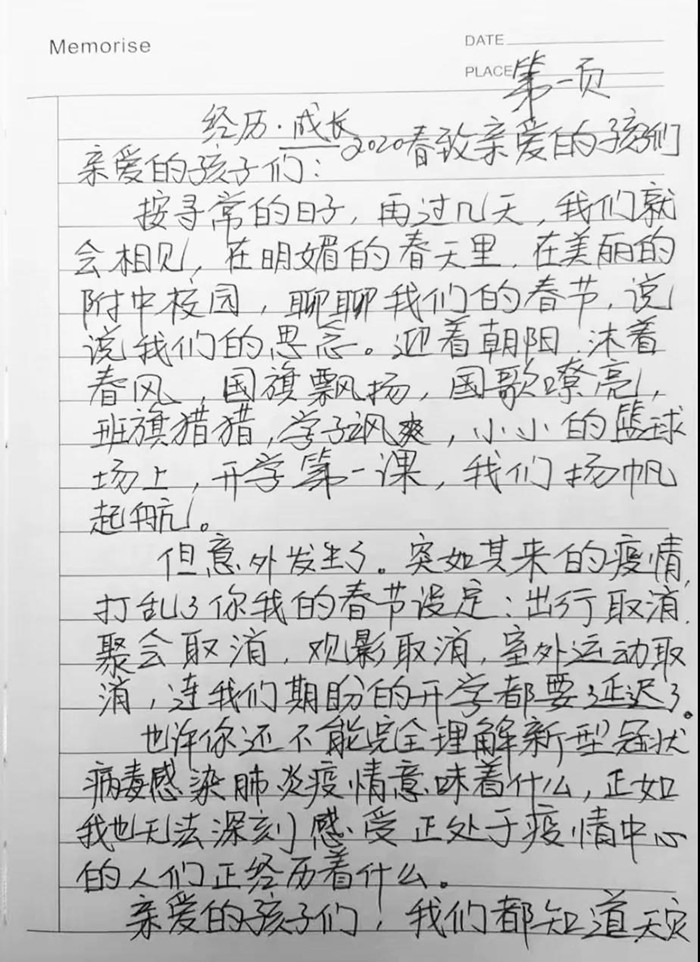 Memorise
DATE
PLACE 第一页
经历·成长
——2020春致亲爱的孩子们
亲爱的孩子们：
按寻常的日子，再过几天，我们就
会相见，在明媚的春天里，在美丽的
附中校园，聊聊我们的春节，说
说我们的思念。迎着朝阳，沐着
春风，国旗飘扬，国歌嘹亮，
班旗猎猎，学子飒爽，小小的篮球
场上，开学第一课，我们扬帆
起航。
但意外发生了。突如其来的疫情，
打乱了你我的春节设定：出行取消，
聚会取消，观影取消，室外运动取
消，连我们期盼的开学都要延迟了。
也许你还不能完全理解新型冠状
病毒感染肺炎疫情意味着什么，正如
我也无法深刻感受正处于疫情中心
的人们正经历着什么。
亲爱的孩子们，我们都知道天灾